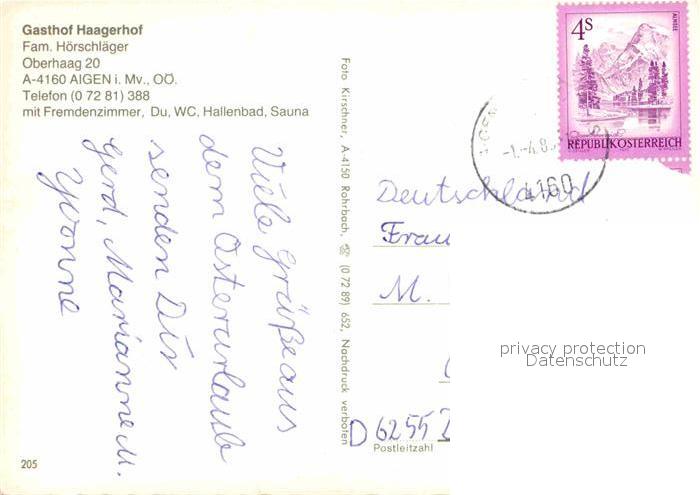 Gasthof Haagerhof
Fam. Hörschläger
Oberhaag 20
A-4160 AIGEN i. Mv., OÖ.
Telefon (0 72 81) 388
mit Fremdenzimmer, Du, WC, Hallenbad, Sauna
Viele Grüße aus
dem Osterurlaub
senden Dir
Gerd, Marianne u.
Yvonne
205
Foto Kirschner, A-4150 Rohrbach, ☎ (0 72 89) 652, Nachdruck verboten
4S
ALMSEE
REPUBLIK ÖSTERREICH
-1.-4.8
4160
Deutschland
Frau
M.
privacy protection
Datenschutz
D 6255
Postleitzahl